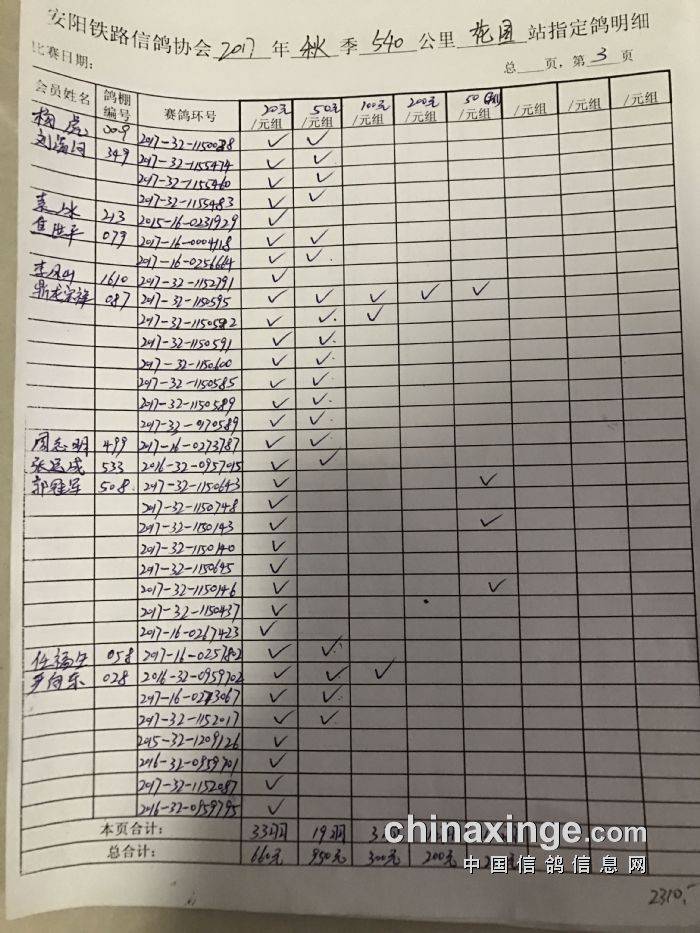 安阳铁路信鸽协会 2017 年 秋 季 540 公里 花园 站指定鸽明细
比赛日期： 总 页，第 3 页
会员姓名 鸽棚编号 赛鸽环号 20元/元组 50元/元组 100元/元组 200元/元组 50 /元组 /元组 /元组 /元组
009 2017-32-1150088 ✓ ✓
349 2017-32-1155474 ✓ ✓
2017-32-1155460 ✓ ✓
2017-32-1155483 ✓ ✓
213 2015-16-0231929 ✓
079 2017-16-0004118 ✓ ✓
2017-16-0256664 ✓ ✓
1610 2017-32-1152791 ✓
087 2017-32-1150595 ✓ ✓ ✓ ✓ ✓
2017-32-1150582 ✓ ✓ ✓
2017-32-1150591 ✓ ✓
2017-32-1150600 ✓ ✓
2017-32-1150585 ✓ ✓
2017-32-1150589 ✓ ✓
2017-32-0170589 ✓ ✓
周志明 499 2017-16-0273787 ✓ ✓
533 2016-32-0957015 ✓ ✓
508 2017-32-1150643 ✓ ✓
2017-32-1150748 ✓
2017-32-1150143 ✓ ✓
2017-32-1150140 ✓
2017-32-1150645 ✓
2017-32-1150146 ✓ ✓
2017-32-1150437 ✓
2017-16-0267423 ✓
058 2017-16-0257802 ✓ ✓
028 2016-32-0959702 ✓ ✓ ✓
2017-16-0273067 ✓ ✓
2017-32-1152017 ✓ ✓
2015-32-1209126 ✓
2016-32-0959701 ✓
2017-32-1152087 ✓
2016-32-0959795 ✓
本页合计： 33羽 19羽 3
总合计： 660元 950元 300元 200元
chinaxinge.com
中国信鸽信息网
2310